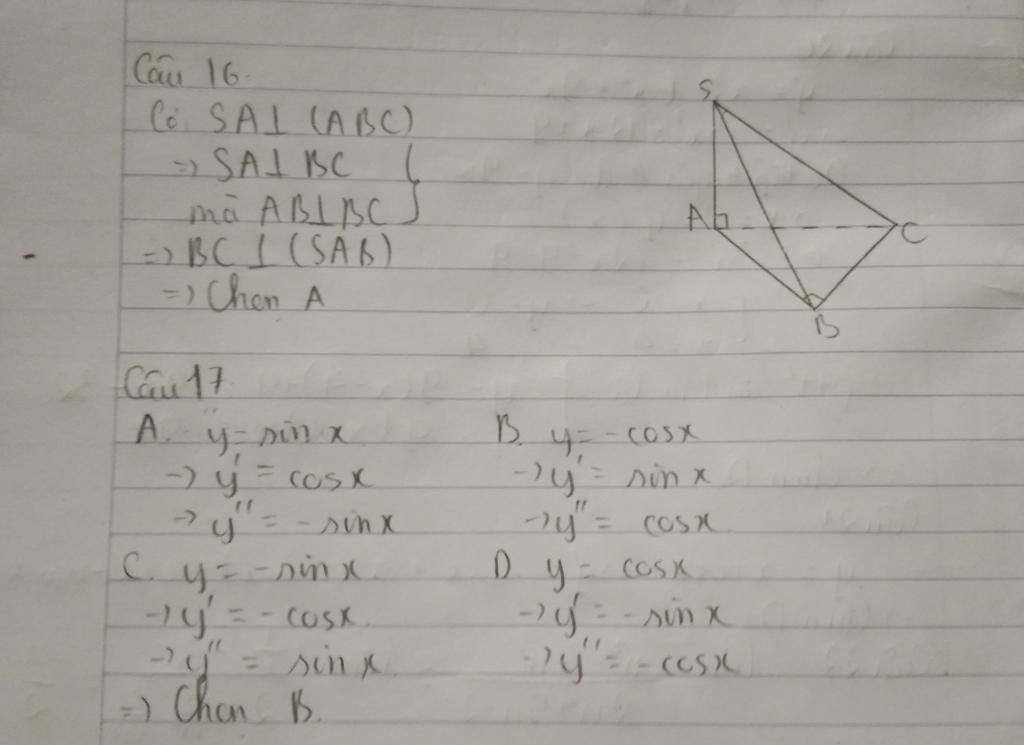 Câu 16.
Có SA⊥ (ABC)
=> SA⊥ BC
mà AB⊥BC
=> BC ⊥ (SAB)
=> Chọn A
S
A
C
B
Câu 17
A. y = sin x B. y = -cosx
-> y' = cosx -> y' = sin x
-> y'' = -sin x -> y'' = cosx
C. y = -sin x D. y = cosx
-> y' = -cosx -> y' = -sin x
-> y'' = sin x -> y'' = -cosx
=> Chọn B.